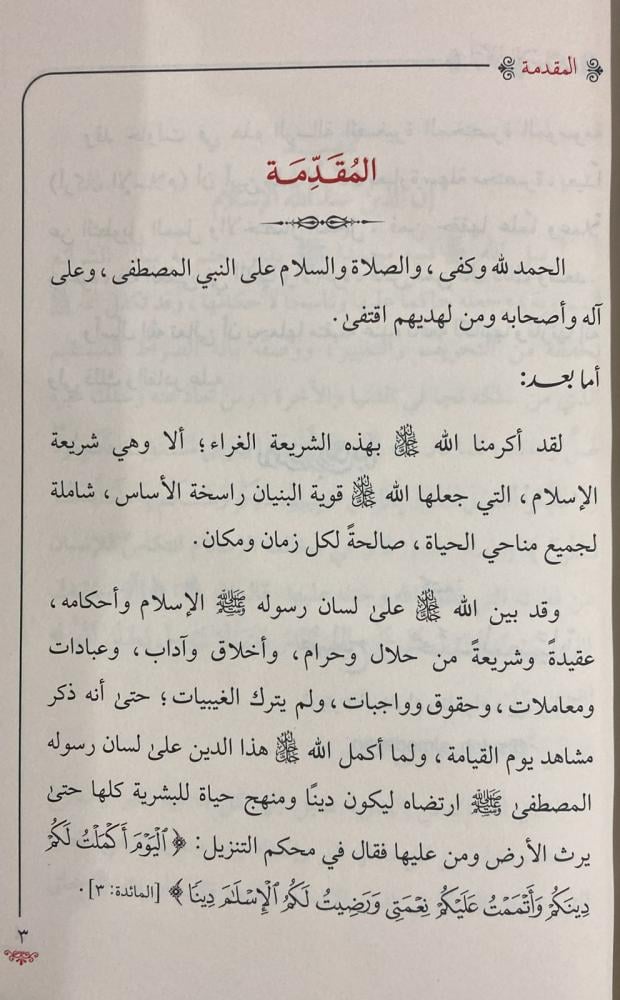 المقدمة
المُقَدِّمَة
الحمد لله وكفى، والصلاة والسلام على النبي المصطفى، وعلى
آله وأصحابه ومن لهديهم اقتفىٰ.
أما بعد:
لقد أكرمنا الله ﷻ بهذه الشريعة الغراء؛ ألا وهي شريعة
الإسلام، التي جعلها الله ﷻ قوية البنيان راسخة الأساس، شاملة
لجميع مناحي الحياة، صالحةً لكل زمان ومكان.
وقد بين الله ﷻ علىٰ لسان رسوله ﷺ الإسلام وأحكامه،
عقيدةً وشريعةً من حلال وحرام، وأخلاق وآداب، وعبادات
ومعاملات، وحقوق وواجبات، ولم يترك الغيبيات؛ حتىٰ أنه ذكر
مشاهد يوم القيامة، ولما أكمل الله ﷻ هذا الدين علىٰ لسان رسوله
المصطفىٰ ﷺ ارتضاه ليكون دينًا ومنهج حياة للبشرية كلها حتىٰ
يرث الأرض ومن عليها فقال في محكم التنزيل: ﴿ٱلۡيَوۡمَ أَكۡمَلۡتُ لَكُمۡ
دِينَكُمۡ وَأَتۡمَمۡتُ عَلَيۡكُمۡ نِعۡمَتِي وَرَضِيتُ لَكُمُ ٱلۡإِسۡلَٰمَ دِينٗا﴾ [المائدة: ٣].
٣